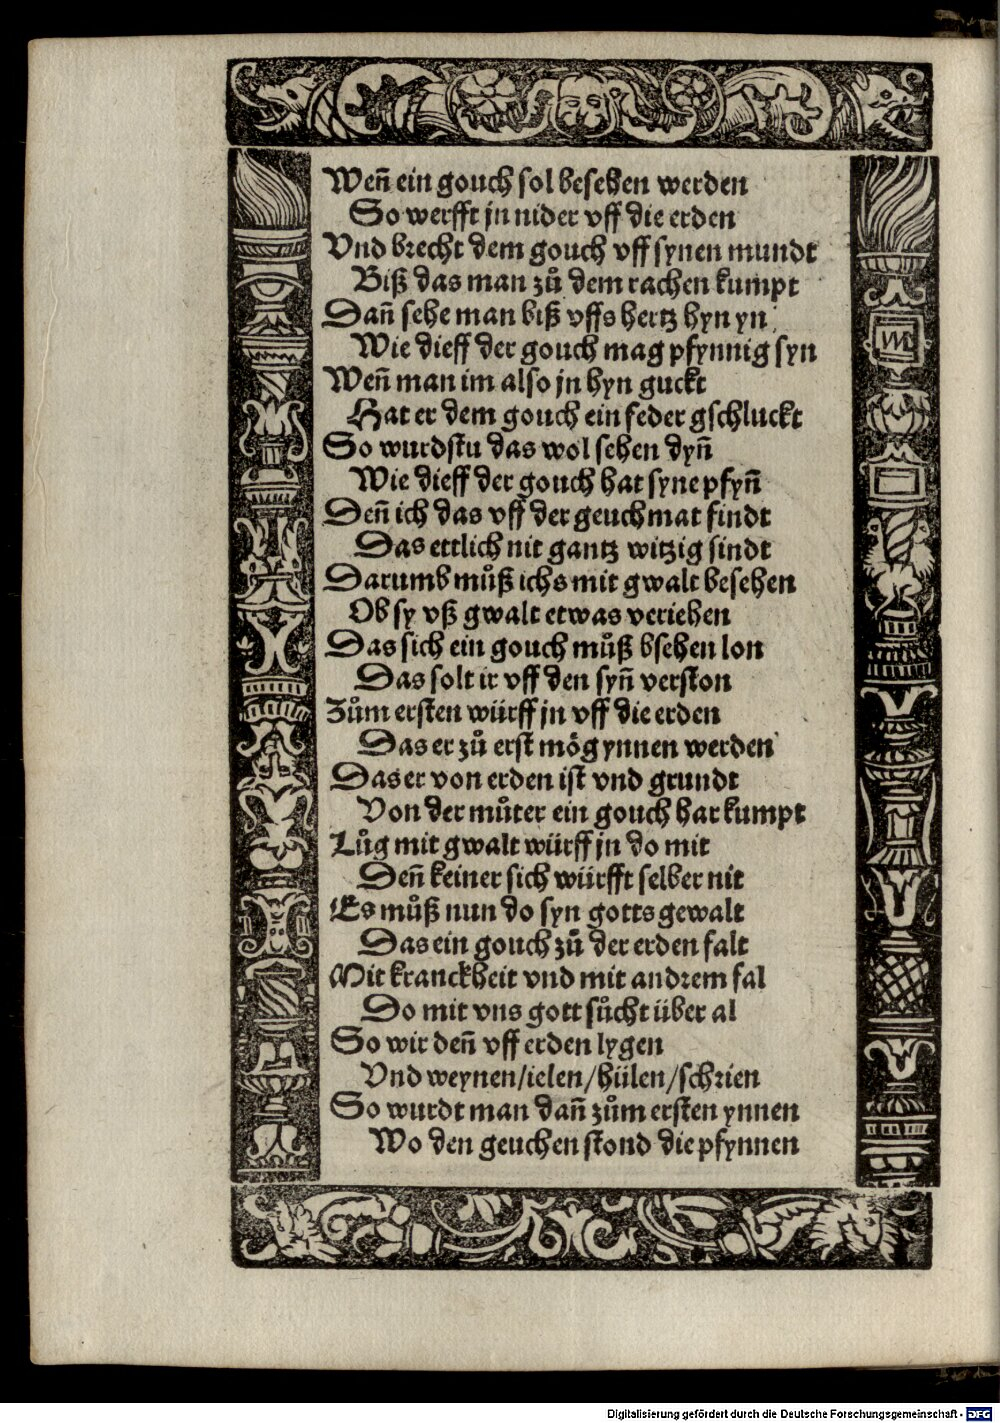 Weñ ein gouch sol besehen werden
So werfft jn nider vff die erden
Vnd brecht dem gouch vff synen mundt
Biß das man zů dem rachen kumpt
Dañ sehe man biß vffs hertz hyn yn
Wie dieff der gouch mag pfynnig syn
Weñ man im also jn hyn guckt
Hat er dem gouch ein feder gschluckt
So wurdstu das wol sehen dyñ
Wie dieff der gouch hat syne pfyñ
Deñ ich das vff der geuchmat findt
Das ettlich nit gantz witzig sindt
Darumb můß ichs mit gwalt besehen
Ob sy vß gwalt etwas veriehen
Das sich ein gouch můß bsehen lon
Das solt ir vff den syñ verston
Zům ersten würff jn vff die erden
Das er zů erst mög ynnen werden
Das er von erden ist vnd grundt
Von der můter ein gouch har kumpt
Lůg mit gwalt würff jn do mit
Deñ keiner sich würfft selber nit
Es můß nun do syn gotts gewalt
Das ein gouch zů der erden falt
Mit kranckheit vnd mit andrem fal
Do mit vns gott sůcht über al
So wir deñ vff erden lygen
Vnd weynen/ielen/hülen/schrien
So wurdt man dañ zům ersten ynnen
Wo den geuchen stond die pfynnen
Digitalisierung gefördert durch die Deutsche Forschungsgemeinschaft - DFG